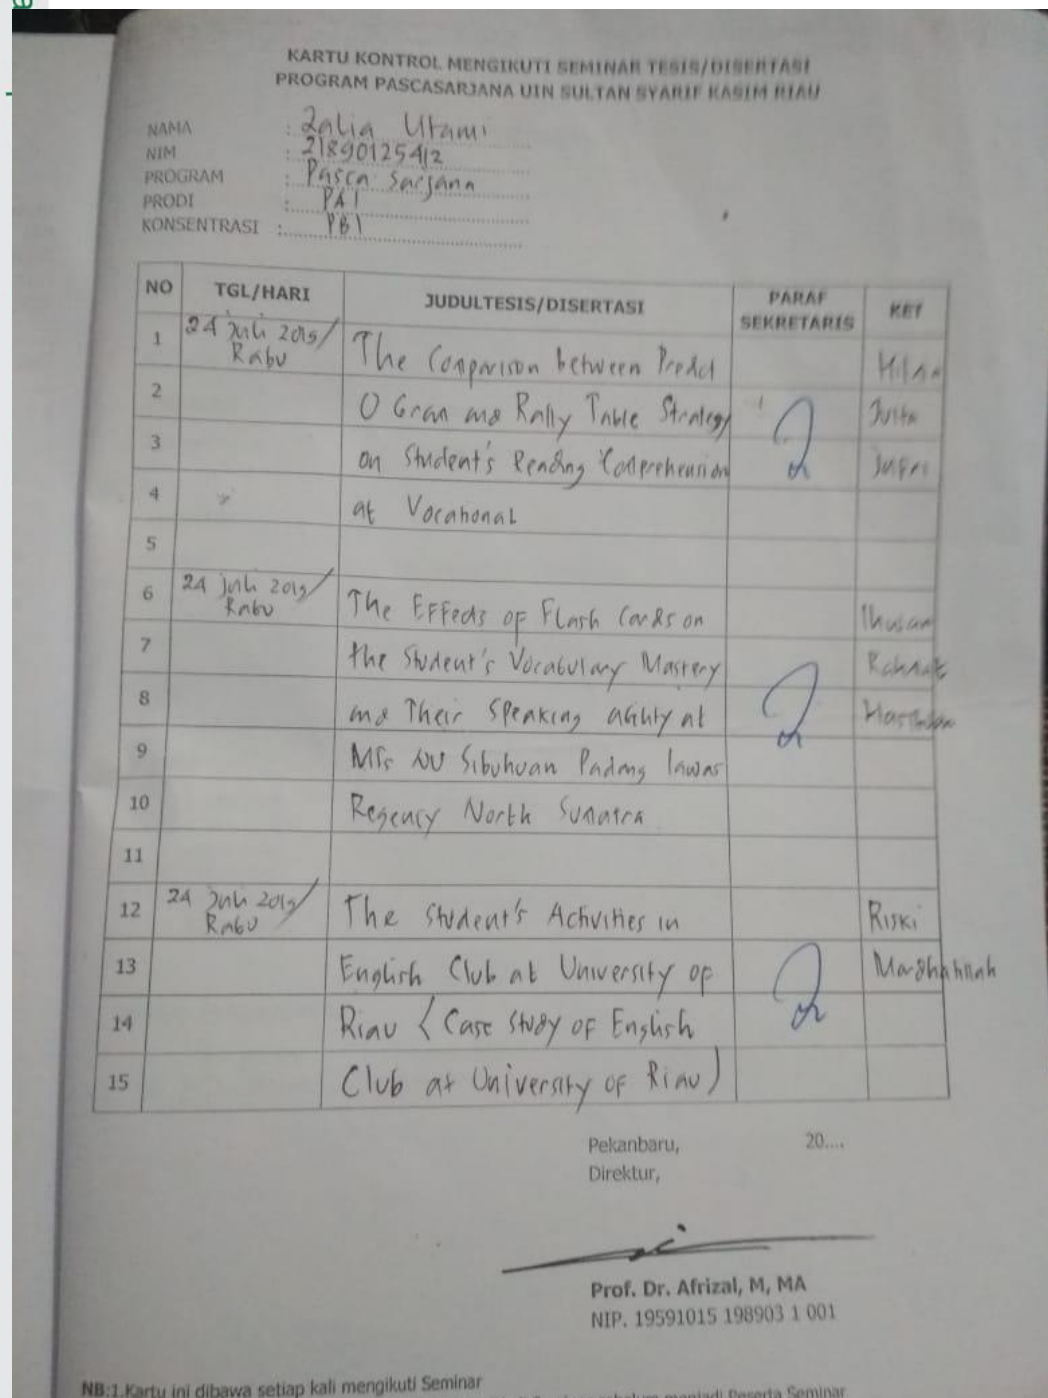 KARTU KONTROL MENGIKUTI SEMINAR TESIS/DISERTASI
PROGRAM PASCASARJANA UIN SULTAN SYARIF KASIM RIAU
NAMA : Zalia Utami
NIM : 21890125412
PROGRAM : Pasca Sarjana
PRODI : PAI
KONSENTRASI : PBI
NO TGL/HARI JUDULTESIS/DISERTASI PARAF SEKRETARIS KET
1 24 Juli 2019/ Rabu The Comparison between Predict
2 O Gram and Rally Table Strategy
3 on Student's Reading Comprehension
4 at Vocational
5
6 24 Juli 2019/ Rabu The Effects of Flash Cards on Ihusan
7 the Student's Vocabulary Mastery Rahmat
8 and Their Speaking ability at
9 MTs NU Sibuhuan Padang lawas
10 Regency North Sumatra
11
12 24 Juli 2019/ Rabu The Student's Activities in Riski
13 English Club at University of
14 Riau (Case Study of English
15 Club at University of Riau)
Pekanbaru, 20....
Direktur,
Prof. Dr. Afrizal, M, MA
NIP. 19591015 198903 1 001
NB:1.Kartu ini dibawa setiap kali mengikuti Seminar
menjadi Peserta Seminar